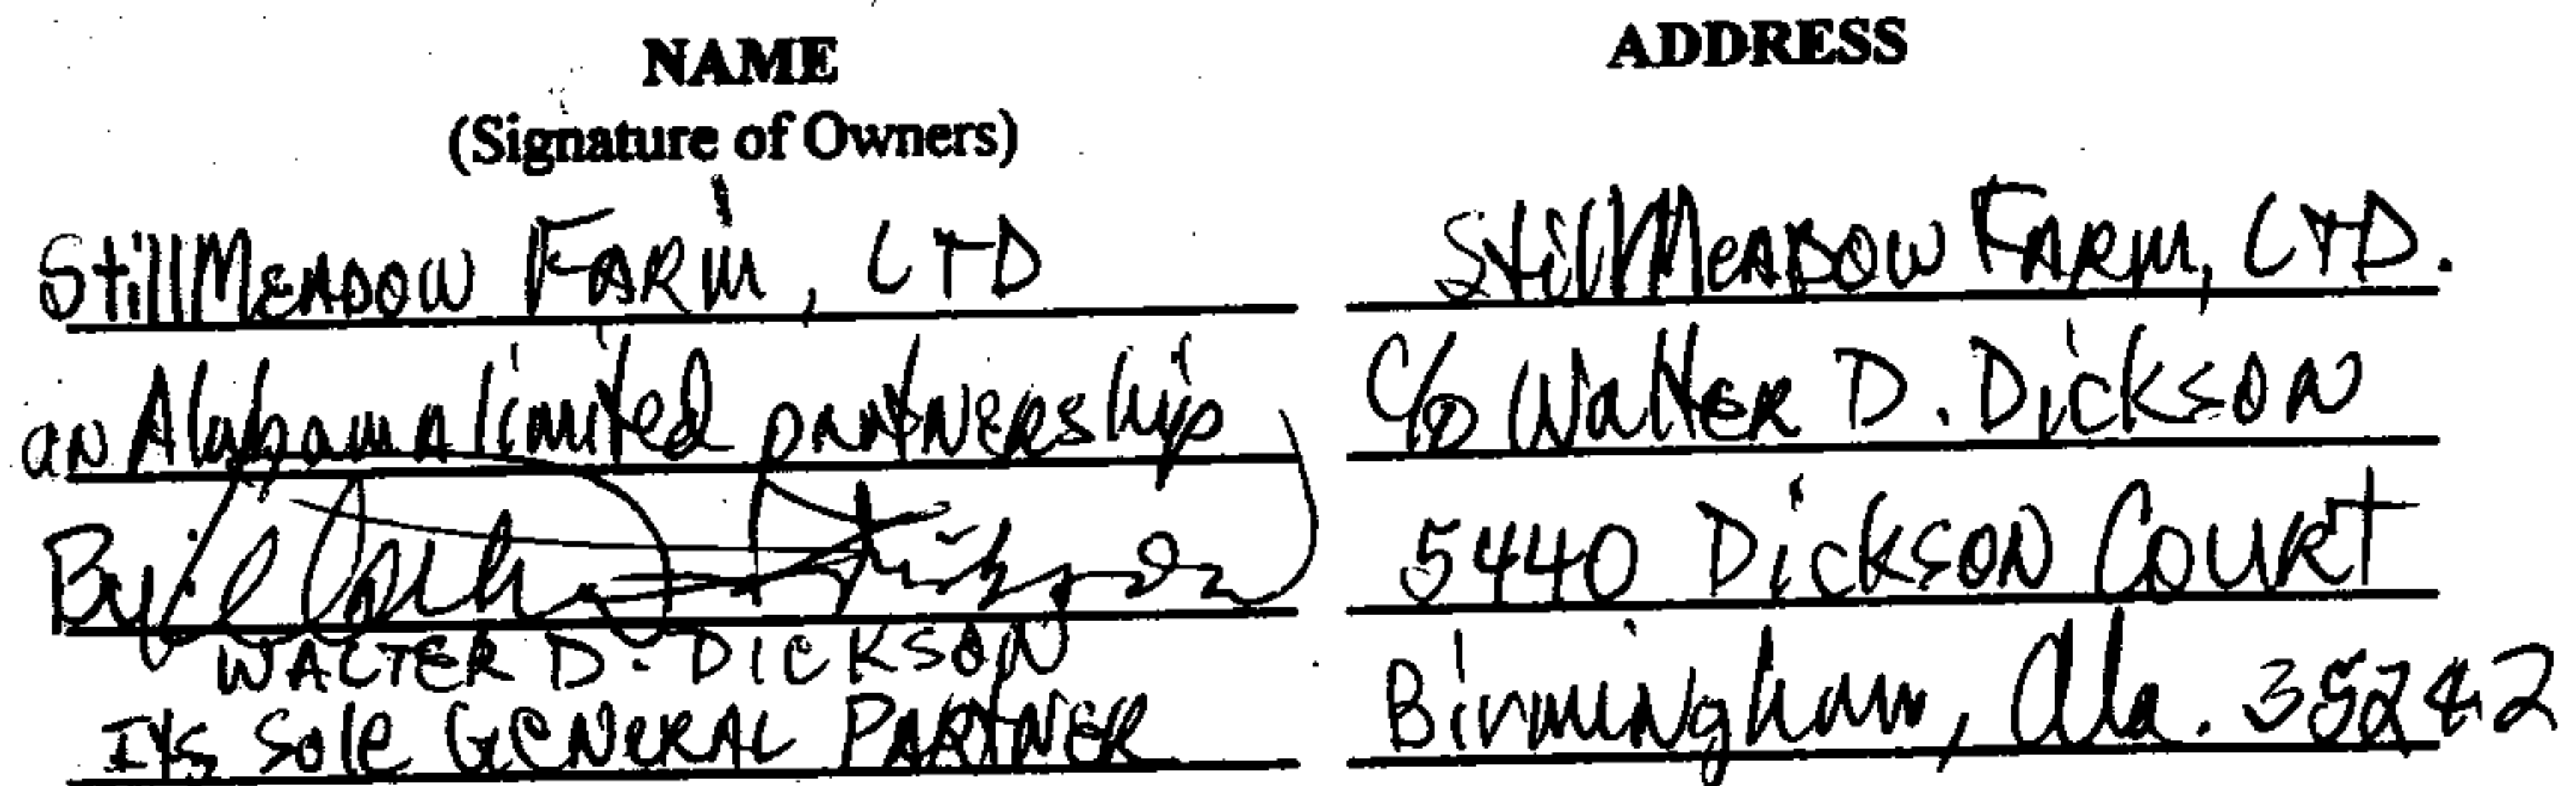 NAME
(Signature of Owners)
StillMEADOW FARM, LTD
an Alabama limited partNERship
By:
WALTER D. DICKSON
Its Sole GENERAL PARTNER
ADDRESS
StillMEADOW FARM, LTD.
C/o WaltER D. DickSON
5440 DickSON COURT
Birmingham, Ala. 35242